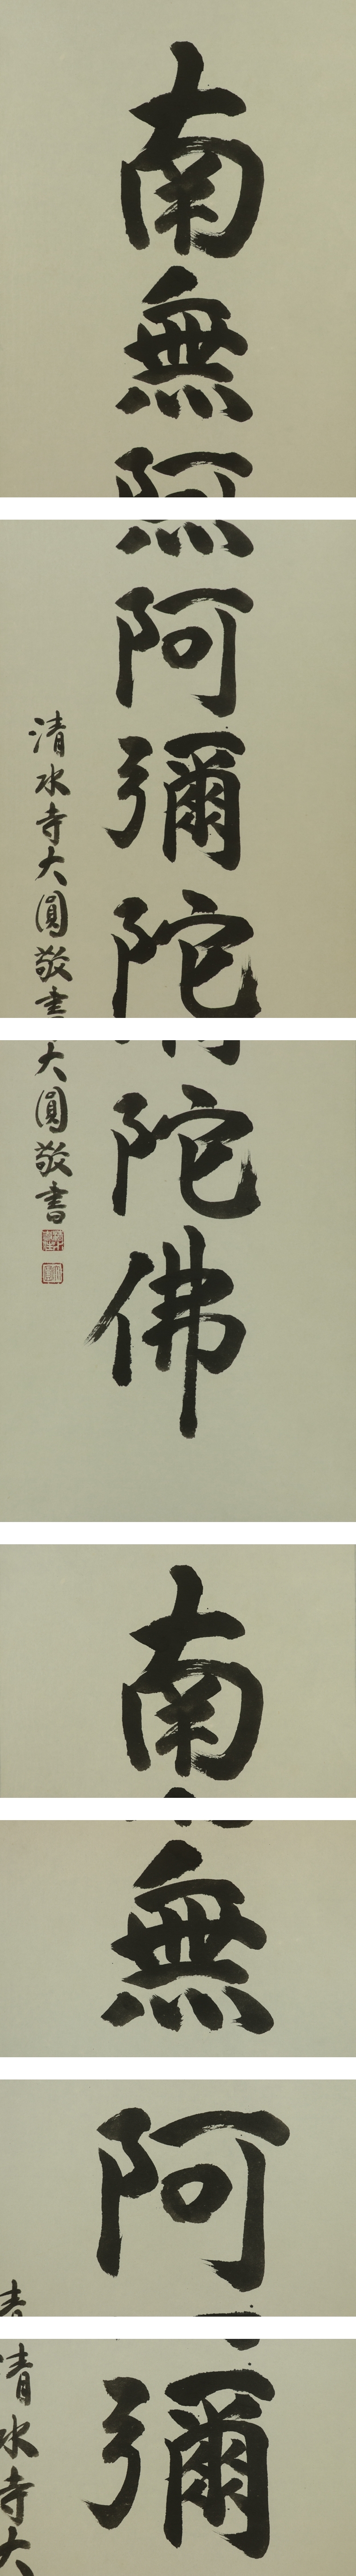 南無阿
無阿彌陀
清水寺大圓敬書
彌陀佛
大圓敬書
南
無
阿
清
彌
清水寺大